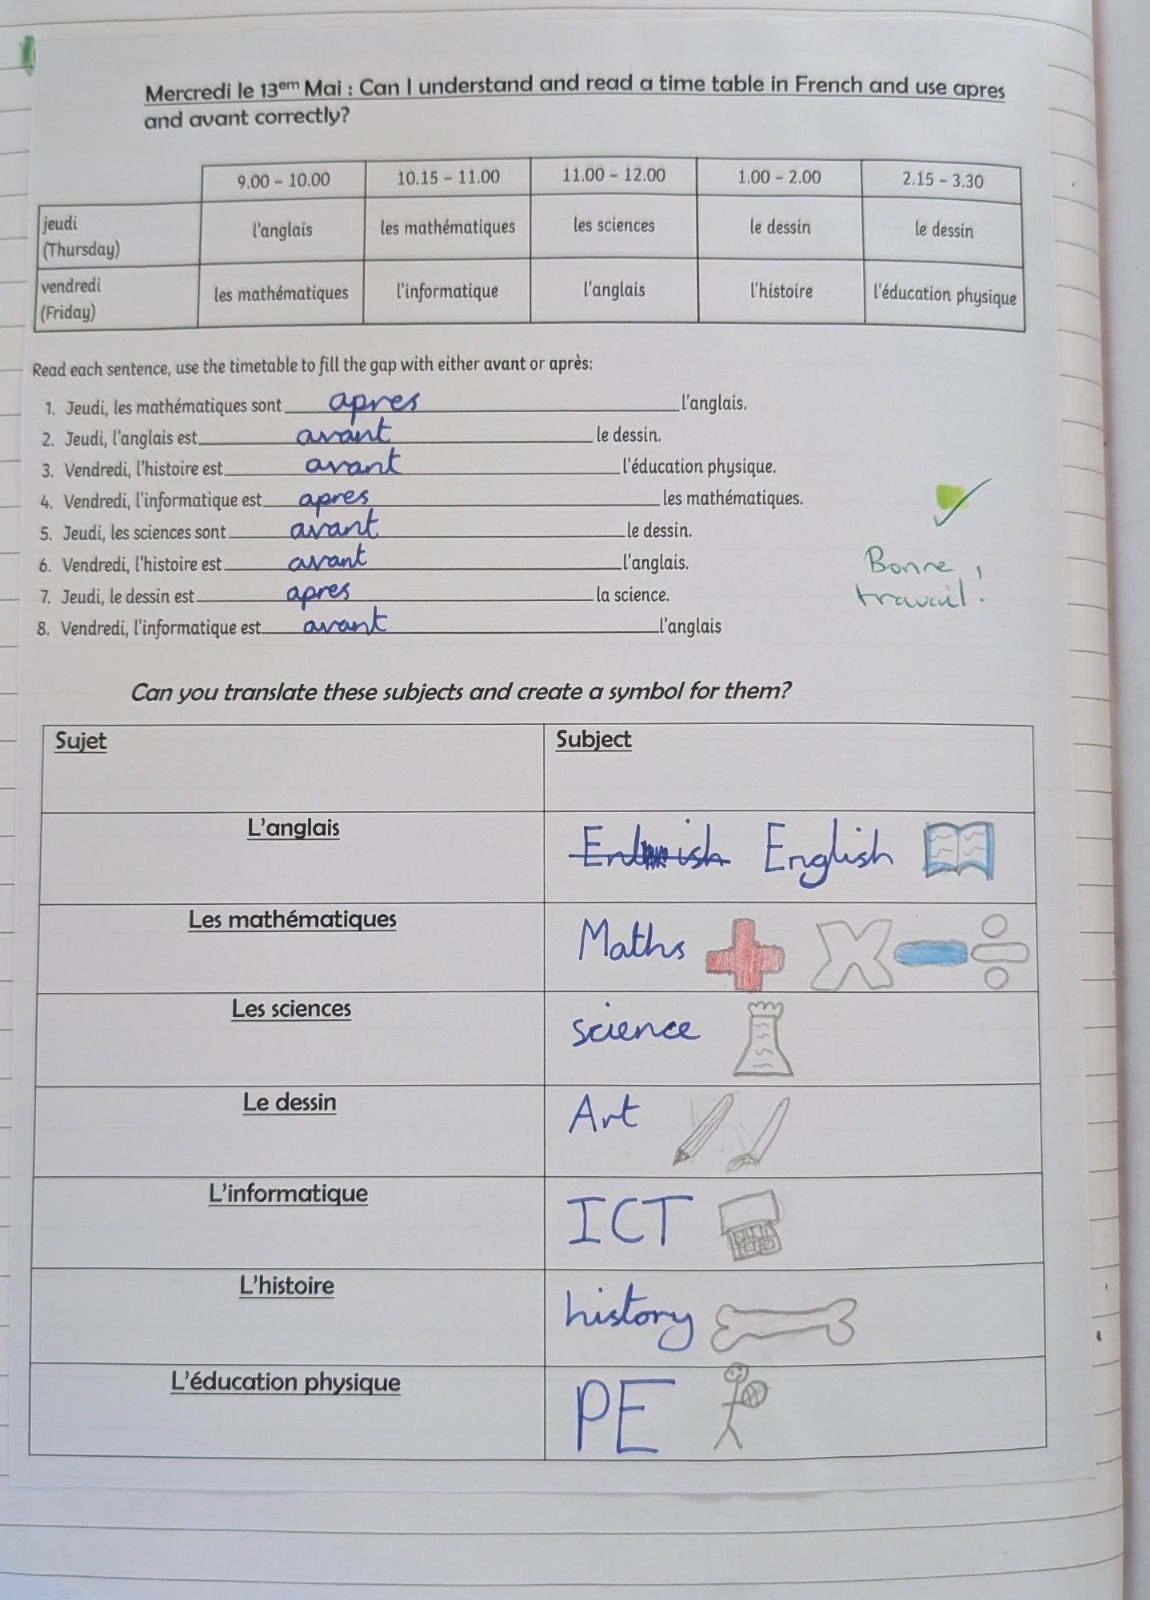 Mercredi le 13em Mai : Can I understand and read a time table in French and use apres
and avant correctly?
9.00 – 10.00 10.15 – 11.00 11.00 – 12.00 1.00 – 2.00 2.15 – 3.30
jeudi
(Thursday) l'anglais les mathématiques les sciences le dessin le dessin
vendredi
(Friday) les mathématiques l'informatique l'anglais l'histoire l'éducation physique
Read each sentence, use the timetable to fill the gap with either avant or après:
1. Jeudi, les mathématiques sont apres l'anglais.
2. Jeudi, l'anglais est avant le dessin.
3. Vendredi, l'histoire est avant l'éducation physique.
4. Vendredi, l'informatique est apres les mathématiques.
5. Jeudi, les sciences sont avant le dessin.
6. Vendredi, l'histoire est avant l'anglais.
7. Jeudi, le dessin est apres la science.
8. Vendredi, l'informatique est avant l'anglais
Bonne
travail!
Can you translate these subjects and create a symbol for them?
Sujet Subject
L'anglais English
Les mathématiques Maths
Les sciences science
Le dessin Art
L'informatique ICT
L'histoire history
L'éducation physique PE